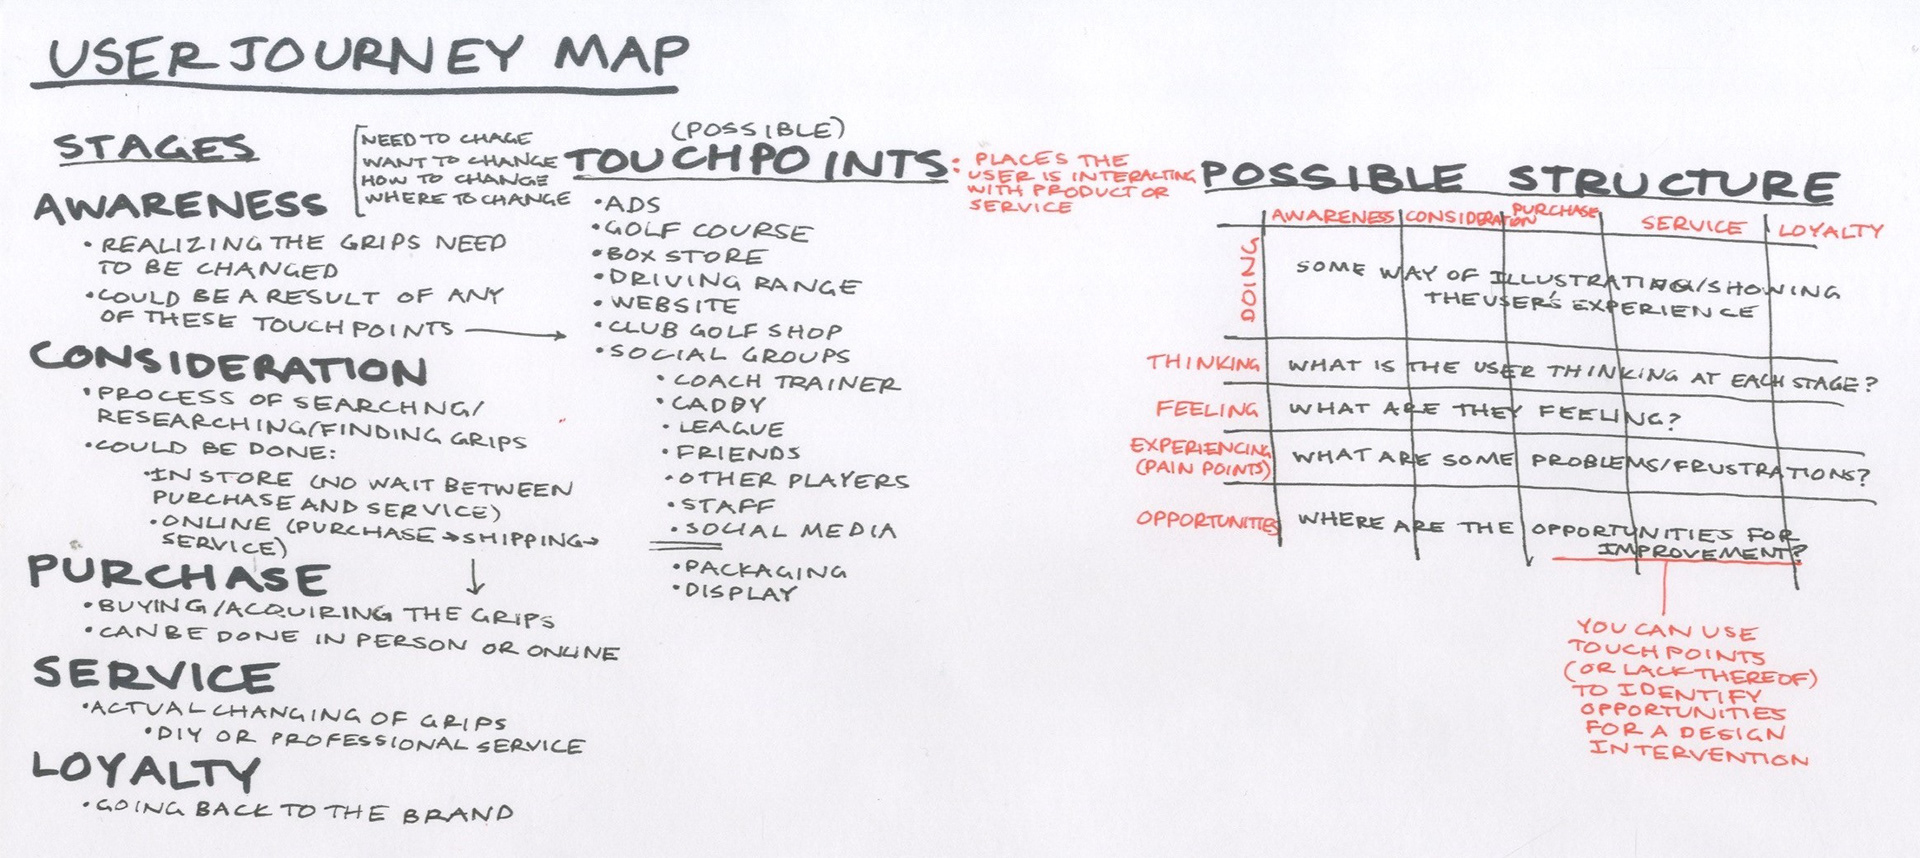 USER JOURNEY MAP
STAGES
NEED TO CHAGE
WANT TO CHANGE
HOW TO CHANGE
WHERE TO CHANGE
AWARENESS
• REALIZING THE GRIPS NEED
TO BE CHANGED
• COULD BE A RESULT OF ANY
OF THESE TOUCHPOINTS →
CONSIDERATION
• PROCESS OF SEARCHNG/
RESEARCHING/FINDING GRIPS
• COULD BE DONE:
• IN STORE (NO WAIT BETWEEN
PURCHASE AND SERVICE)
• ONLINE (PURCHASE → SHIPPING →
SERVICE)
PURCHASE
• BUYING/ACQUIRING THE GRIPS
• CAN BE DONE IN PERSON OR ONLINE
SERVICE
• ACTUAL CHANGING OF GRIPS
• DIY OR PROFESSIONAL SERVICE
LOYALTY
• GOING BACK TO THE BRAND
(POSSIBLE)
TOUCHPOINTS:
PLACES THE
USER IS INTERACTING
WITH PRODUCT OR
SERVICE
• ADS
• GOLF COURSE
• BOX STORE
• DRIVING RANGE
• WEBSITE
• CLUB GOLF SHOP
• SOCIAL GROUPS
• COACH TRAINER
• CADDY
• LEAGUE
• FRIENDS
• OTHER PLAYERS
• STAFF
• SOCIAL MEDIA
• PACKAGING
• DISPLAY
POSSIBLE STRUCTURE
AWARENESS CONSIDERATION PURCHASE SERVICE LOYALTY
DOING
SOME WAY OF ILLUSTRATING/SHOWING
THE USER'S EXPERIENCE
THINKING WHAT IS THE USER THINKING AT EACH STAGE?
FEELING WHAT ARE THEY FEELING?
EXPERIENCING
(PAIN POINTS) WHAT ARE SOME PROBLEMS/FRUSTRATIONS?
OPPORTUNITIES WHERE ARE THE OPPORTUNITIES FOR
IMPROVEMENT?
YOU CAN USE
TOUCHPOINTS
(OR LACK THEREOF)
TO IDENTIFY
OPPORTUNITIES
FOR A DESIGN
INTERVENTION